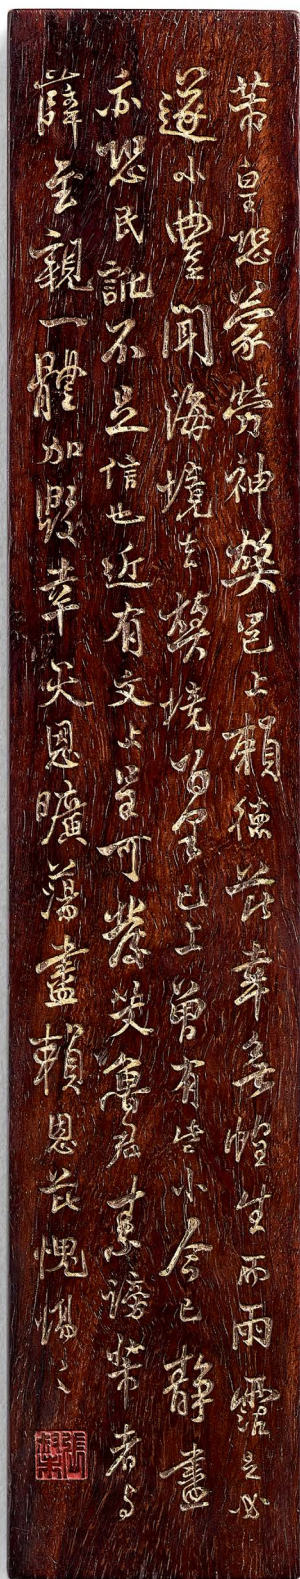 蒂皇恐蒙勞神獎邑上賴德芘幸無惶生而雨霑足必
遂小豐聞海境去獎境百里已上曾有些小今已靜盡
亦恐民訛不足信也近有文字呈可發笑寓名東牓幣者與
薛至親一體加照幸天恩曠蕩盡賴恩芘愧惕